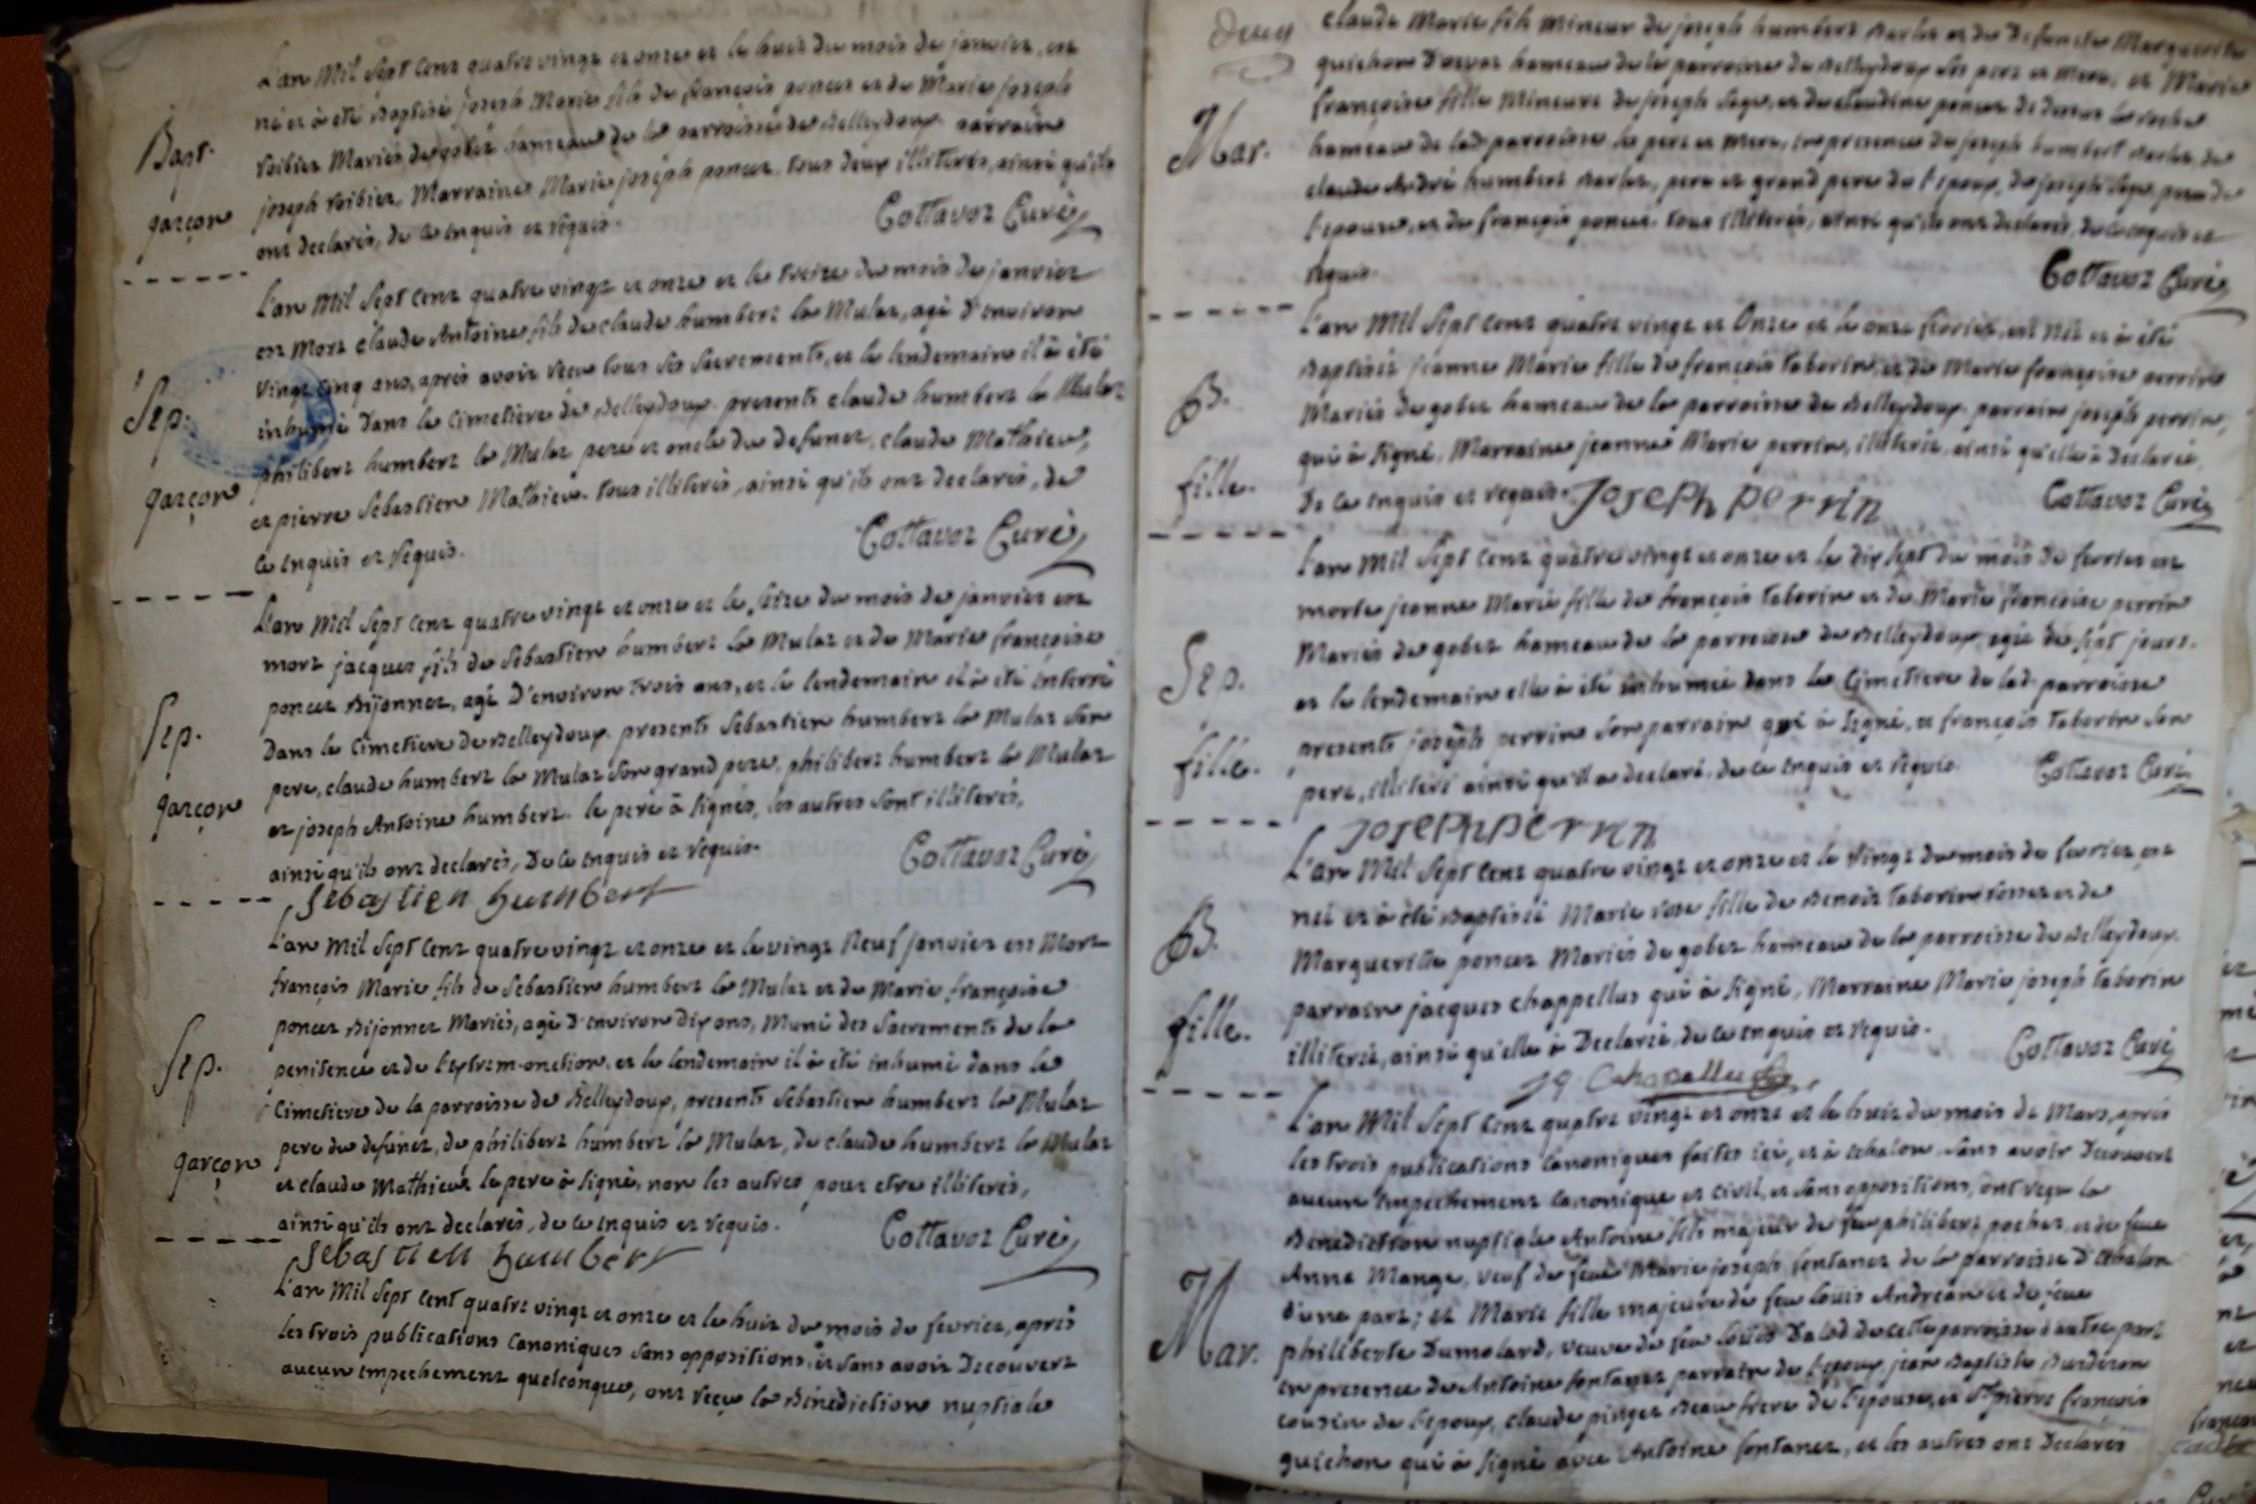 L'an Mil Sept Cent quatre vingt et onze et le huit du mois de janvier, est
Bapt.
né et a été Baptisé joseph Marie fils de françois poncet et de Marie joseph
Roibier Mariés de gobet hameau de la parroisse de Belleydoux parrain
joseph Roibier, Marraine Marie joseph poncet. tous deux illiterés, ainsi qu'ils
garçon
ont declarés, de ce enquis et requis.
Cottavoz Curé
L'an Mil Sept Cent quatre vingt et onze et le treize du mois de janvier
est Mort claude Antoine fils de claude humbert la Mulaz, agé d'environ
vingt cinq ans, après avoir recu tous ses sacrements, et le lendemain il a été
Sep.
inhumé Dans le Cimetiere de Belleydoux. presents claude humbert la Mulaz
philibert humbert la Mulaz pere et oncle du defunct, claude Mathieu,
garçon
et pierre Sebastien Mathieu. tous illiterés, ainsi qu'ils ont declarés, de
ce enquis et requis.
Cottavoz Curé
L'an Mil Sept Cent quatre vingt et onze et le seize du mois de janvier est
mort jacques fils de Sebastien humbert la Mulaz et de Marie françoise
poncet Bijonnet, agé D'environ trois ans, et le lendemain il a été enterré
Sep.
Dans le Cimetiere de Belleydoux. presents Sebastien humbert la Mulaz son
pere, claude humbert la Mulaz son grand pere, philibert humbert la Mulaz
garçon
et joseph Antoine humbert. le pere a signés, les autres sont illiterés,
ainsi qu'ils ont declarés, De ce enquis et requis.
Cottavoz Curé
sebastien humbert
L'an Mil Sept Cent quatre vingt et onze et le vingt Neuf janvier est Mort
françois Marie fils de Sebastien humbert la Mulaz et de Marie françoise
poncet Bijonnet Mariés, agé d'environ dix ans, Muni des Sacrements de la
Sep.
penitence et de l'extrem-onction. et le lendemain il a été inhumé dans le
Cimetiere de la parroisse de Belleydoux, presents Sebastien humbert la Mulaz
pere du defunct, de philibert humbert la Mulaz, de claude humbert la Mulaz
garçon
et claude Mathieu. le pere a signé, non les autres pour etre illiterés,
ainsi qu'ils ont declarés, de ce enquis et requis.
Cottavoz Curé
sebastien humbert
L'an Mil Sept Cent quatre vingt et onze et le huit du mois de fevrier, après
les trois publications Canoniques sans oppositions, et sans avoir Decouvert
aucun empechement quelconque, ont reçu la Bénédiction nuptiale
Deux
claude Marie fils Mineur de joseph humbert et de Defuncte Marguerite
guichon hameau de la parroisse de Belleydoux ses pere et mere, et Marie
françoise fille Mineure de joseph et de claudine poncet
Mar.
hameau de lad. parroisse, les pere et mere, en presence de joseph humbert
claude André humbert, pere et grand pere de l'epoux, de joseph pere de
l'epouse, et de françois poncet. tous illiterés, ainsi qu'ils ont declarés, de ce enquis et
requis.
Cottavoz Curé
L'an Mil Sept Cent quatre vingt et Onze et le onze fevrier, est née et a été
Baptisée jeanne Marie fille de françois taborin, et de Marie françoise perrin
B.
Mariés de gobet hameau de la parroisse de Belleydoux. parrain joseph perrin,
qui a signé, Marraine jeanne Marie perrin, illiterée, ainsi qu'elle a Declarée,
fille.
De ce enquis et requis.
joseph perrin
Cottavoz Curé
L'an Mil Sept Cent quatre vingt et onze et le dix sept du mois de fevrier est
morte jeanne Marie fille de françois taborin et de Marie françoise perrin
Mariés de gobet hameau de la parroisse de Belleydoux, agée de sept jours.
Sep.
et le lendemain elle a été inhumée dans le Cimetiere de lad. parroisse
presents joseph perrin son parrain qui a signé, et françois taborin son
fille.
pere, illiteré ainsi qu'il a declaré, de ce enquis et requis.
Cottavoz Curé
joseph perrin
L'an Mil Sept Cent quatre vingt et onze et le vingt du mois de fevrier est
née et a été Baptisée Marie rose fille de Benoit taborin et de
B.
Marguerite poncet Mariés de gobet hameau de la parroisse de Belleydoux.
parrain jacques chappellus qui a signé, Marraine Marie joseph taborin
fille.
illiterée, ainsi qu'elle a Declarée, de ce enquis et requis.
Cottavoz Curé
L'an Mil Sept Cent quatre vingt et onze et le huit du mois de Mars, après
les trois publications Canoniques faites ici, et à echalon sans avoir Decouvert
aucun empechement canonique et civil, et sans oppositions, ont reçu la
Bénédiction nuptiale Antoine fils majeur de feu philibert pochet, et de feue
Anne Mange, veuf de feue Marie joseph fontanet de la parroisse d'Echalon
Mar.
d'une part; et Marie fille majeure de feu louis Andréan et de feue
philiberte Dumolard, veuve de feu de cette parroisse d'autre part
en presence de Antoine fontanet parrain de l'epoux, jean Baptiste
cousin de l'epoux, claude pinget Beau frere de l'epouse, et Sr pierre françois
guichon qui a signé avec Antoine fontanet, et les autres ont Declarés